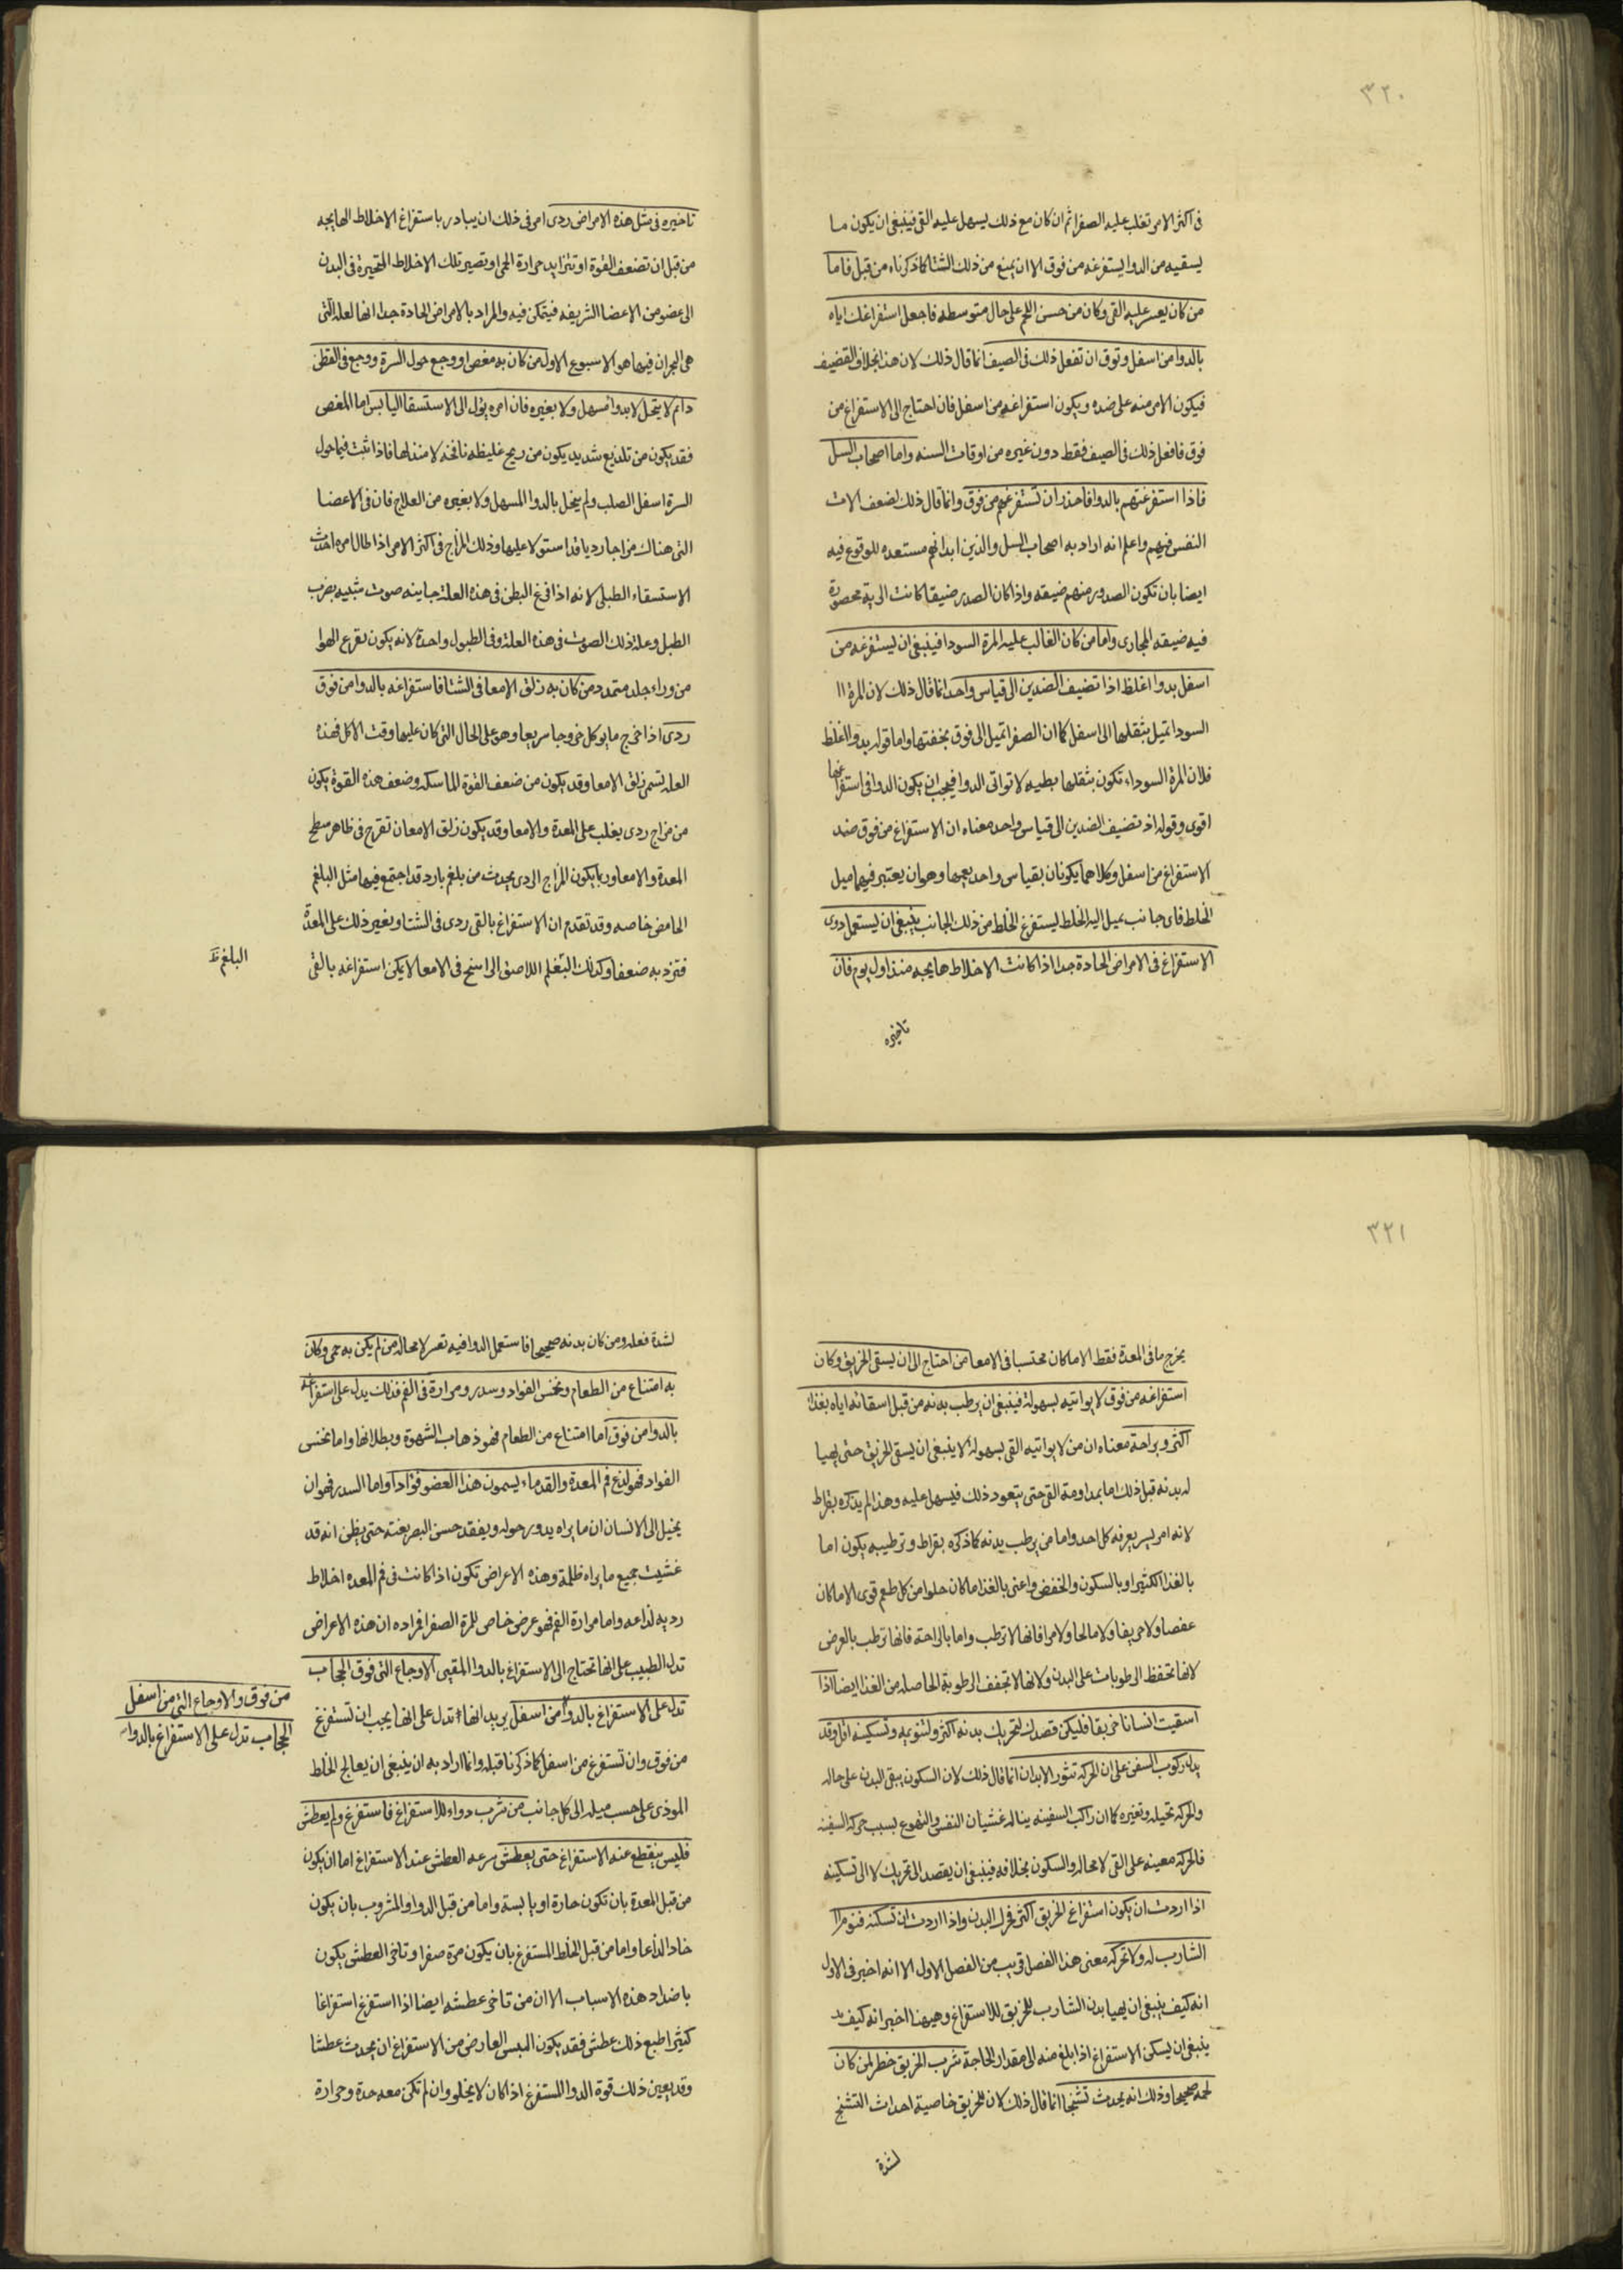 ٣٢٠
فى اكثر الامر تغلب عليه الصفرا ثم ان كان مع ذلك يسهل عليه القى فينبغى ان يكون ما
يسقيه من الدوا يستفرغه من فوق الا ان يمنع من ذلك الشتا كما ذكرناه من قبل فاما
من كان يعسر عليه القى وكان من حسن اللحم على حال متوسطه فاجعل استفراغك اياه
بالدوا من اسفل وتوق ان تفعل ذلك فى الصيف انما قال ذلك لان هذا بخلاف القضيف
فيكون الامر منه على ضده ويكون استفراغه من اسفل فان احتاج الى الاستفراغ من
فوق فافعل ذلك فى الصيف فقط دون غيره من اوقات السنه واما اصحاب السل
فاذا استفرغتهم بالدوا فاحذر ان تستفرغهم من فوق وانما قال ذلك لضعف الات
النفس فيهم واعلم انه اراد به اصحاب السل والذين ابدانهم مستعده للوقوع فيه
ايضا بان تكون الصدور منهم ضيقه واذا كان الصدر ضيقا كانت الريه محصورة
فيه ضيقه المجارى واما من كان الغالب عليه المرة السودا فينبغى ان يستفرغه من
اسفل بدوا اغلظ اذا تضيف الضدين الى قياس واحد انما قال ذلك لان المرة اا
السودا تميل بثقلها الى اسفل كما ان الصفرا تميل الى فوق بخفتها واما قوله بدوا اغلظ
فلان المرة السوداء تكون بثقلها بطيه لا تواتى الدوا فيجب ان يكون الدوا فى استفراغها
اقوى وقوله اذ تضيف الضدين الى قياس واحد معناه ان الاستفراغ من فوق ضد
الاستفراغ من اسفل وكلاهما يكونان بقياس واحد يعمهما وهو ان يعتبر فيهما ميل
الخلط فاى جانب يميل اليه الخلط ليستفرغ الخلط من ذلك الجانب ينبغى ان يستعمل دوى
الاستفراغ فى الامراض الحادة جدا اذا كانت الاخلاط هايجه منذ اول يوم فان
تاخيره
تاخيره فى مثل هذه الامراض ردى امر فى ذلك ان يبادر باستفراغ الاخلاط الهايجه
من قبل ان تضعف القوة او تتزايد حرارة الحمى او تصير تلك الاخلاط المتحيرة فى البدن
الى عضو من الاعضا الشريفه فيتمكن فيه والمراد بالامراض الحادة جدا انها لعلة التى
هى البحران فيها هو الاسبوع الاول من كان به مغص او وجع حول السرة ووجع فى القطن
دائم لا يتحل لا بدوا مسهل ولا بغيره فان امره يؤل الى الاستسقا اليابس اما المغص
فقد يكون من تلذيع شديد يكون من ريح غليظه نافخه لا منفذ لها فاذا ثبت فيما حول
السرة اسفل الصلب ولم يتحل بالدوا المسهل ولا بغيره من العلاج فان فى الاعضا
التى هناك مزاجا رديا قد استولا عليها وذلك المزاج فى اكثر الامر اذا طال امره احدث
الاستسقاء الطبلى لانه اذا قرع البطن فى هذه العلة جا منه صوت شبيه بضرب
الطبل وعلة ذلك الصوت فى هذه العلة وفى الطبول واحدة لانه يكون بقرع الهوا
من وراء جلد متمدد من كان به زلق الامعا فى الشتا فاستفراغه بالدوا من فوق
ردى اذا خرج ما يوكل خروجا سريعا وهو على الحال التى كان عليها وقت الاكل فهذه
العله تسمى زلق الامعا وقد يكون من ضعف القوة الماسكه وضعف هذه القوة يكون
من مزاج ردى يغلب على المعدة والامعا وقد يكون زلق الامعا من تقرح فى ظاهر سطح
المعدة والامعا وربما يكون المزاج الردى يحدث من بلغم بارد قد اجتمع فيها مثل البلغم
الحامض خاصه وقد تقدم ان الاستفراغ بالقى ردى فى الشتا وبغير ذلك على المعدة
فتزد به ضعفا وكذلك البلغم اللاصق الراسخ فى الامعا لا يمكن استفراغه بالقى
البلغم
٣٢١
يخرج ما فى المعدة فقط الا ما كان محتسبا فى الامعا من احتاج الى ان يسقى الخربق وكان
استفراغه من فوق لا يواتيه بسهولة فينبغى ان يرطب بدنه من قبل اسقائه اياه بغذاء
اكثر وبراحة معناه ان من لا يواتيه القى بسهولة لا ينبغى ان يسقى الخربق حتى يهيا
له بدنه قبل ذلك اما بمداومة القى حتى يتعود ذلك فيسهل عليه وهذا لم يذكره بقراط
لانه امر يسر يعرفه كل احد واما من يرطب بدنه كما ذكره بقراط وترطيبه يكون اما
بالغذا الكثير او بالسكون والخفض واعنى بالغذا ما كان حلوا من كل طعم قوى الا ما كان
عفصا ولا حريفا ولا مالحا ولا مرا فانها لا ترطب واما بالراحة فانها ترطب بالعرض
لانها تحفظ الرطوبات على البدن ولانها لا تجفف الرطوبة الحاصله من الغذا ايضا اذا
اسقيت انسانا خربقا فليكن قصدك لتحريك بدنه اكثر ولتنويمه وتسكينه اقل وقد
يدل ركوب السفن على ان الحركة تثور الابدان انما قال ذلك لان السكون يبقى البدن على حاله
والحركة تحيله وتغيره كما ان راكب السفينه يناله غشيان النفس والتهوع بسبب حركة السفينه
فالحركة معينه على القى لا محاله والسكون بخلافه فينبغى ان يقصد الى تحريك لا الى تسكينه
اذا اردت ان يكون استفراغ الخربق اكثر فحرك البدن واذا اردت ان تسكنه فنوم اا
الشارب له ولا تحركه معنى هذا الفصل قريب من الفصل الاول الا انه اخبر فى الاول
انه كيف ينبغى ان يهيا بدن الشارب للخربق للاستفراغ وهيهنا اخبر انه كيف
ينبغى ان يسكن الاستفراغ اذا بلغ منه الى مقدار الحاجة شرب الخربق خطر لمن كان
لحمه صحيحا وذلك انه يحدث تشنجا انما قال ذلك لان للخربق خاصية احداث التشنج
لشدة
لشدة فعله ومن كان بدنه صحيحا فاستعمل الدوا فيه تعسر لا محاله من لم يكن به حمى وكان
به امتناع من الطعام ونخس الفواد وسدر ومرارة فى الفم فذلك يدل على استفراغه
بالدوا من فوق اما امتناع من الطعام فهو ذهاب الشهوة وبطلانها واما نخس
الفواد فهو لذع فم المعدة والقدماء يسمون هذا العضو فوادا واما السدر فهو ان
يخيل الى الانسان ان ما يراه يدور حوله ويفقد حس البصر بغتة حتى يظن انه قد
غشيت جميع ما يراه ظلمة وهذه الاعراض تكون اذا كانت فى فم المعدة اخلاط
رديه لذاعه واما مرارة الفم فهو عرض خاص للمرة الصفرا فمراده ان هذه الاعراض
تدل الطبيب على انها تحتاج الى الاستفراغ بالدوا المقيى الاوجاع التى فوق الحجاب
تدل على الاستفراغ بالدوا من اسفل يريد انها تدل على انها يجب ان تستفرغ
من فوق وان تستفرغ من اسفل كما ذكرنا قبله وانما اراد به ان ينبغى ان يعالج الخلط
الموذى على حسب ميله الى كل جانب من شرب دواء للاستفراغ فاستفرغ ولم يعطش
فليس ينقطع عنه الاستفراغ حتى يعطش سرعه العطش عند الاستفراغ اما ان يكون
من قبل المعدة بان تكون حارة او يابسة واما من قبل الدوا والمشروب بان يكون
حادا لذاعا واما من قبل الخلط المستفرغ بان يكون مرة صفرا وتاخر العطش يكون
باضداد هذه الاسباب الا ان من تاخر عطشه ايضا اذا استفرغ استفراغا
كثيرا طبع ذلك عطش فقد يكون اليبس العارض من الاستفراغ ان يحدث عطشا
وقد يعين ذلك قوة الدوا المستفرغ اذا كان لا يخلو وان لم تكن معه حدة وحرارة
من فوق والاوجاع التى من اسفل
الحجاب تدل على الاستفراغ بالدواء